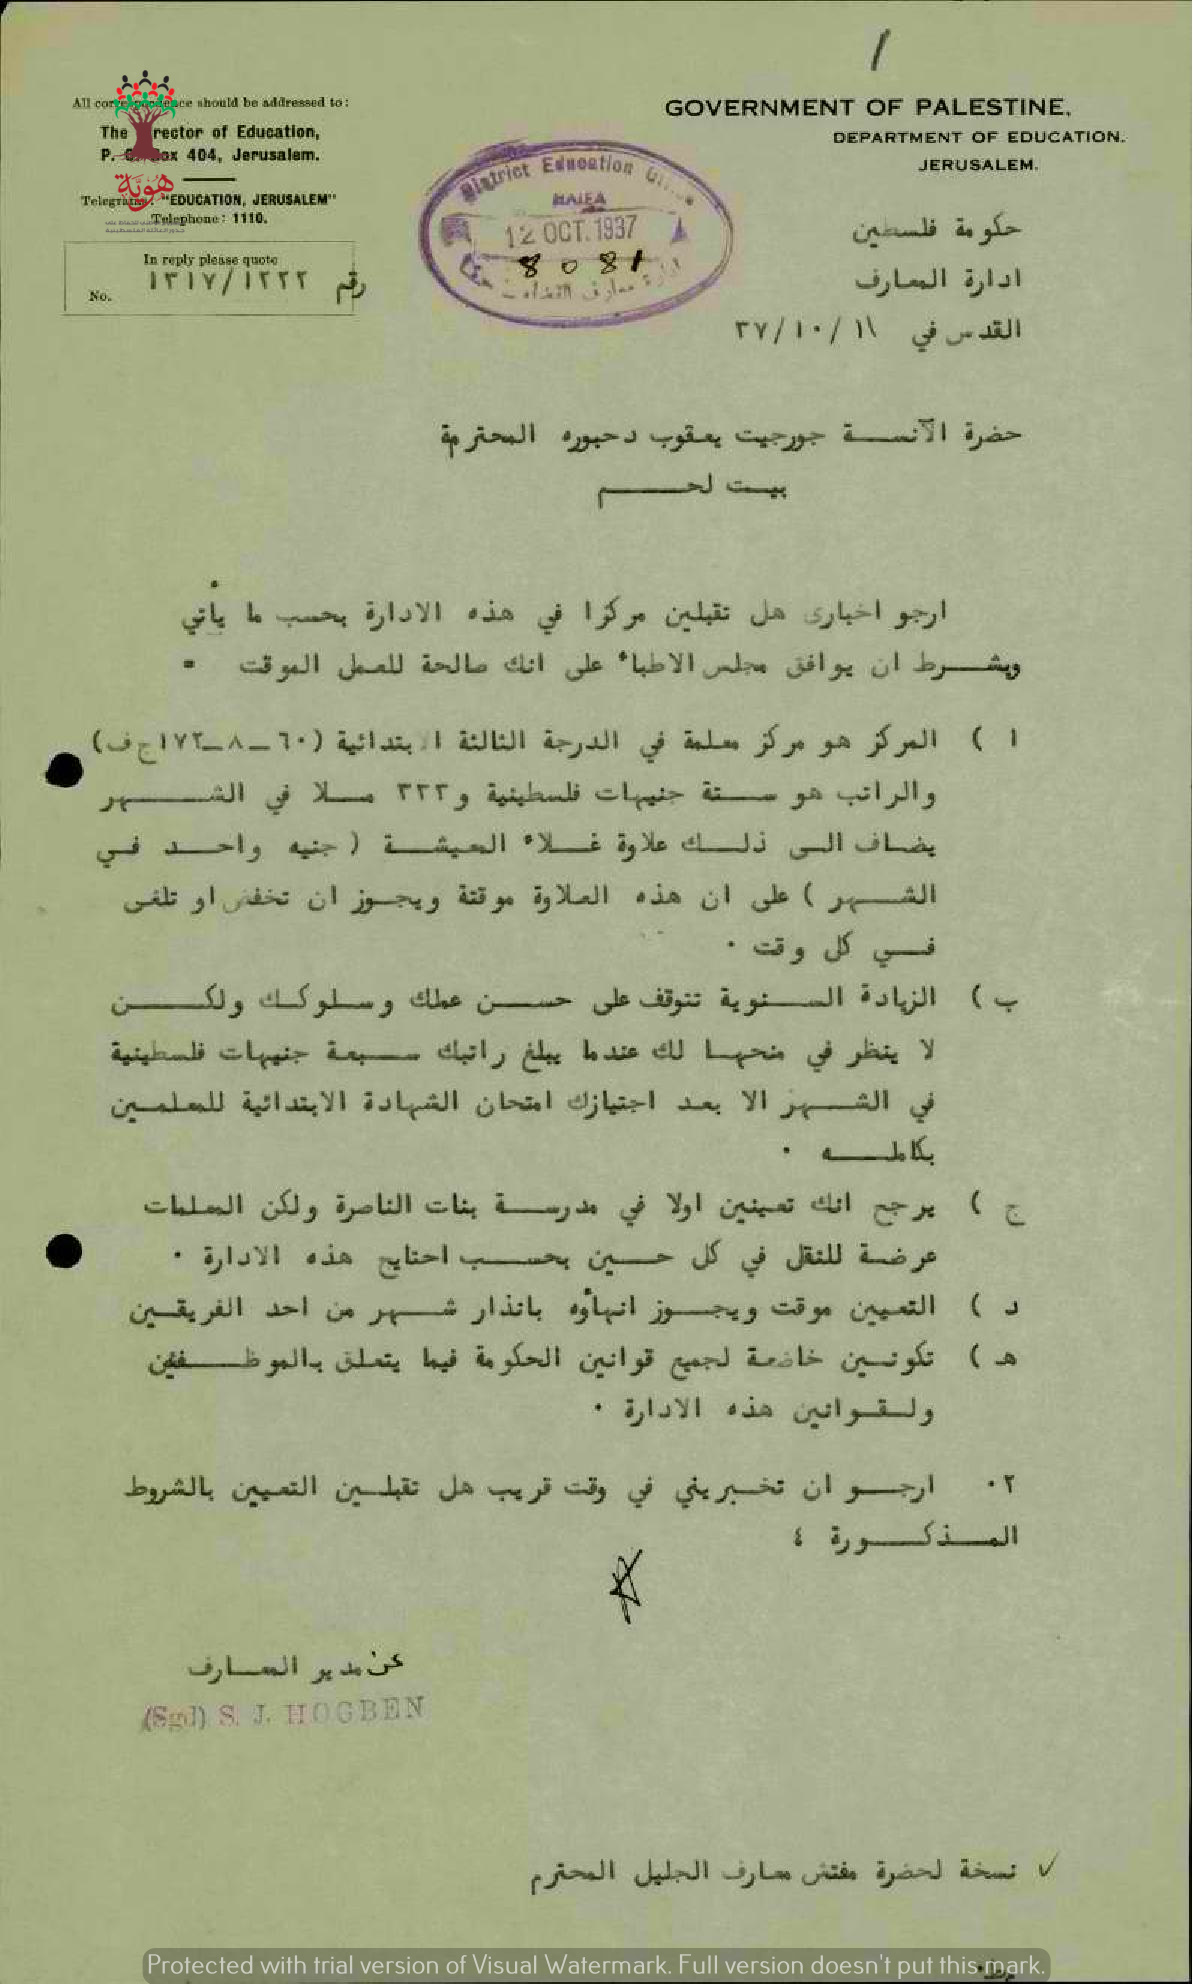 All correspondence should be addressed to:
The Director of Education,
P. O. Box 404, Jerusalem.
Telegrams: "EDUCATION, JERUSALEM"
Telephone: 1110.
In reply please quote
No. ١٣١٧/١٢٢٢ رقم
هُويّة
GOVERNMENT OF PALESTINE,
DEPARTMENT OF EDUCATION.
JERUSALEM.
District Education
HAIFA
12 OCT. 1937
8081
حكومة فلسطين
ادارة المعارف
القدس في ١١/١٠/٣٧
حضرة الآنسة جورجيت يعقوب دحبوره المحترمة
بيت لحم
ارجو اخباري هل تقبلين مركزا في هذه الادارة بحسب ما يأتي
وبشرط ان يوافق مجلس الاطباء على انك صالحة للعمل الموقت ٠
ا ) المركز هو مركز معلمة في الدرجة الثالثة الابتدائية (٦٠–٨–١٧٢ج ف)
والراتب هو ستة جنيهات فلسطينية و٣٣٣ ملا في الشهر
يضاف الى ذلك علاوة غلاء المعيشة ( جنيه واحد في
الشهر ) على ان هذه العلاوة موقتة ويجوز ان تخفض او تلغى
في كل وقت ٠
ب ) الزيادة السنوية تتوقف على حسن عملك وسلوكك ولكن
لا ينظر في منحها لك عندما يبلغ راتبك سبعة جنيهات فلسطينية
في الشهر الا بعد اجتيازك امتحان الشهادة الابتدائية للمعلمين
بكامله ٠
ج ) يرجح انك تعينين اولا في مدرسة بنات الناصرة ولكن المعلمات
عرضة للنقل في كل حين بحسب احتايج هذه الادارة ٠
د ) التعيين موقت ويجوز انهاؤه بانذار شهر من احد الفريقين
هـ ) تكونين خاضعة لجميع قوانين الحكومة فيما يتعلق بالموظفين
ولقوانين هذه الادارة ٠
٢٠ ارجو ان تخبريني في وقت قريب هل تقبلين التعيين بالشروط
المذكورة ؟
عن مدير المعارف
(Sgd) S. J. HOGBEN
✓ نسخة لحضرة مفتش معارف الجليل المحترم
Protected with trial version of Visual Watermark. Full version doesn't put this mark.